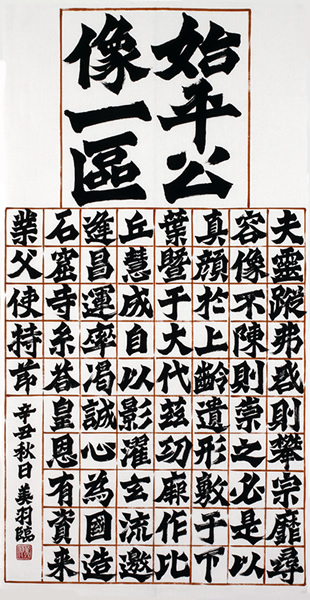 始平公
像一區
夫靈蹤弗啓則攀宗靡尋
容像不陳則崇之必是以
真顏於上齡遺形敷于下
葉暨于大代茲功厥作比
丘慧成自以影濯玄流邀
逢昌運率渴誠心為國造
石窟寺糸荅皇恩有資来
業父使持節
辛丑秋日美羽臨